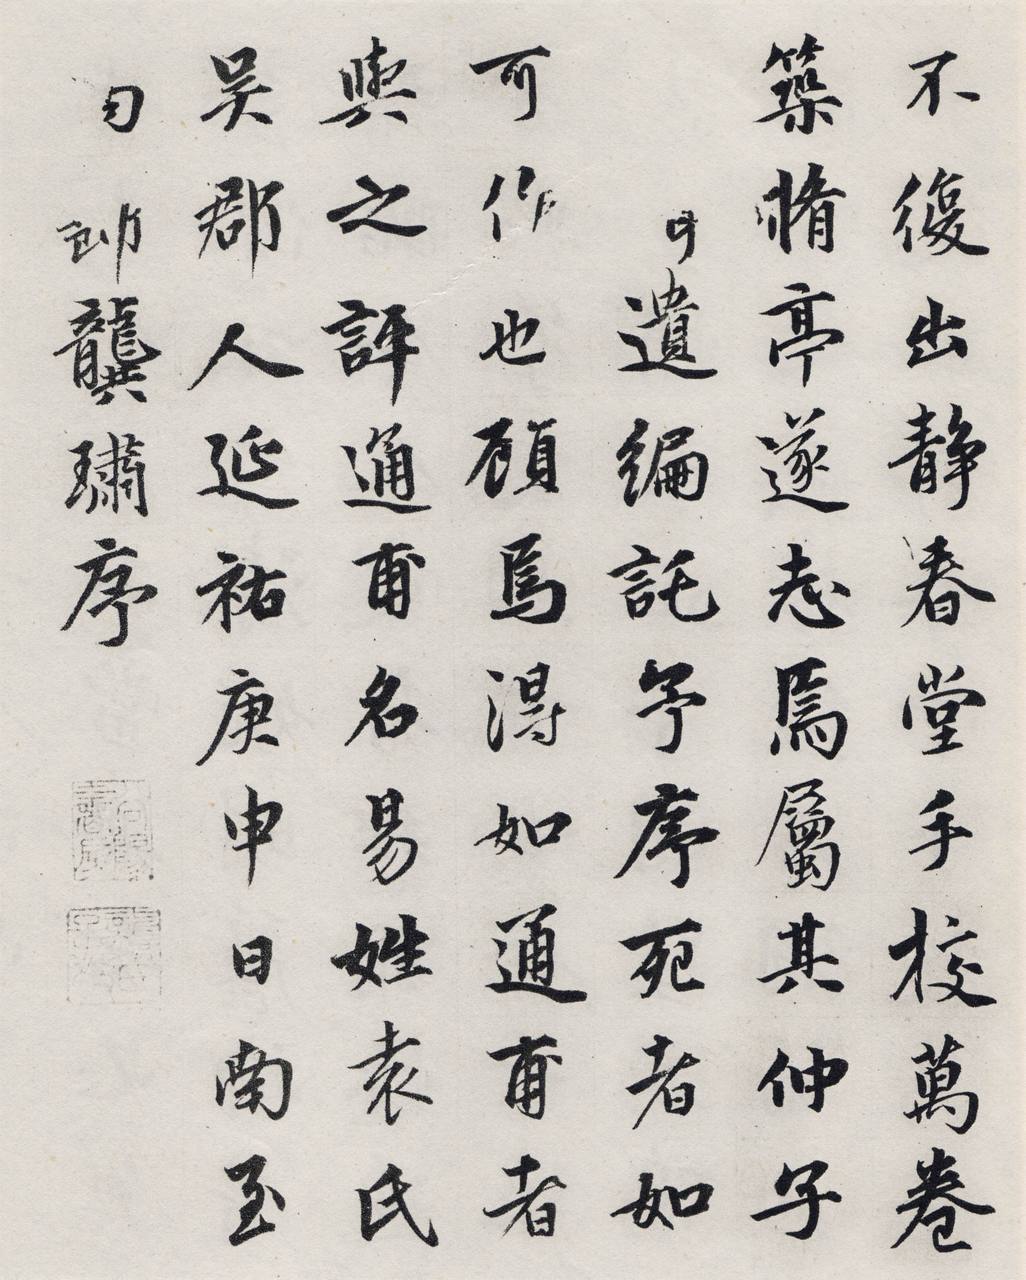 不復出静春堂手校萬卷
築亭遂志焉屬其仲子
遺編託予序死者如
可作也顧焉得如通甫者
與之評通甫名易姓袁氏
吴郡人延祐庚申日南至
龔璛序